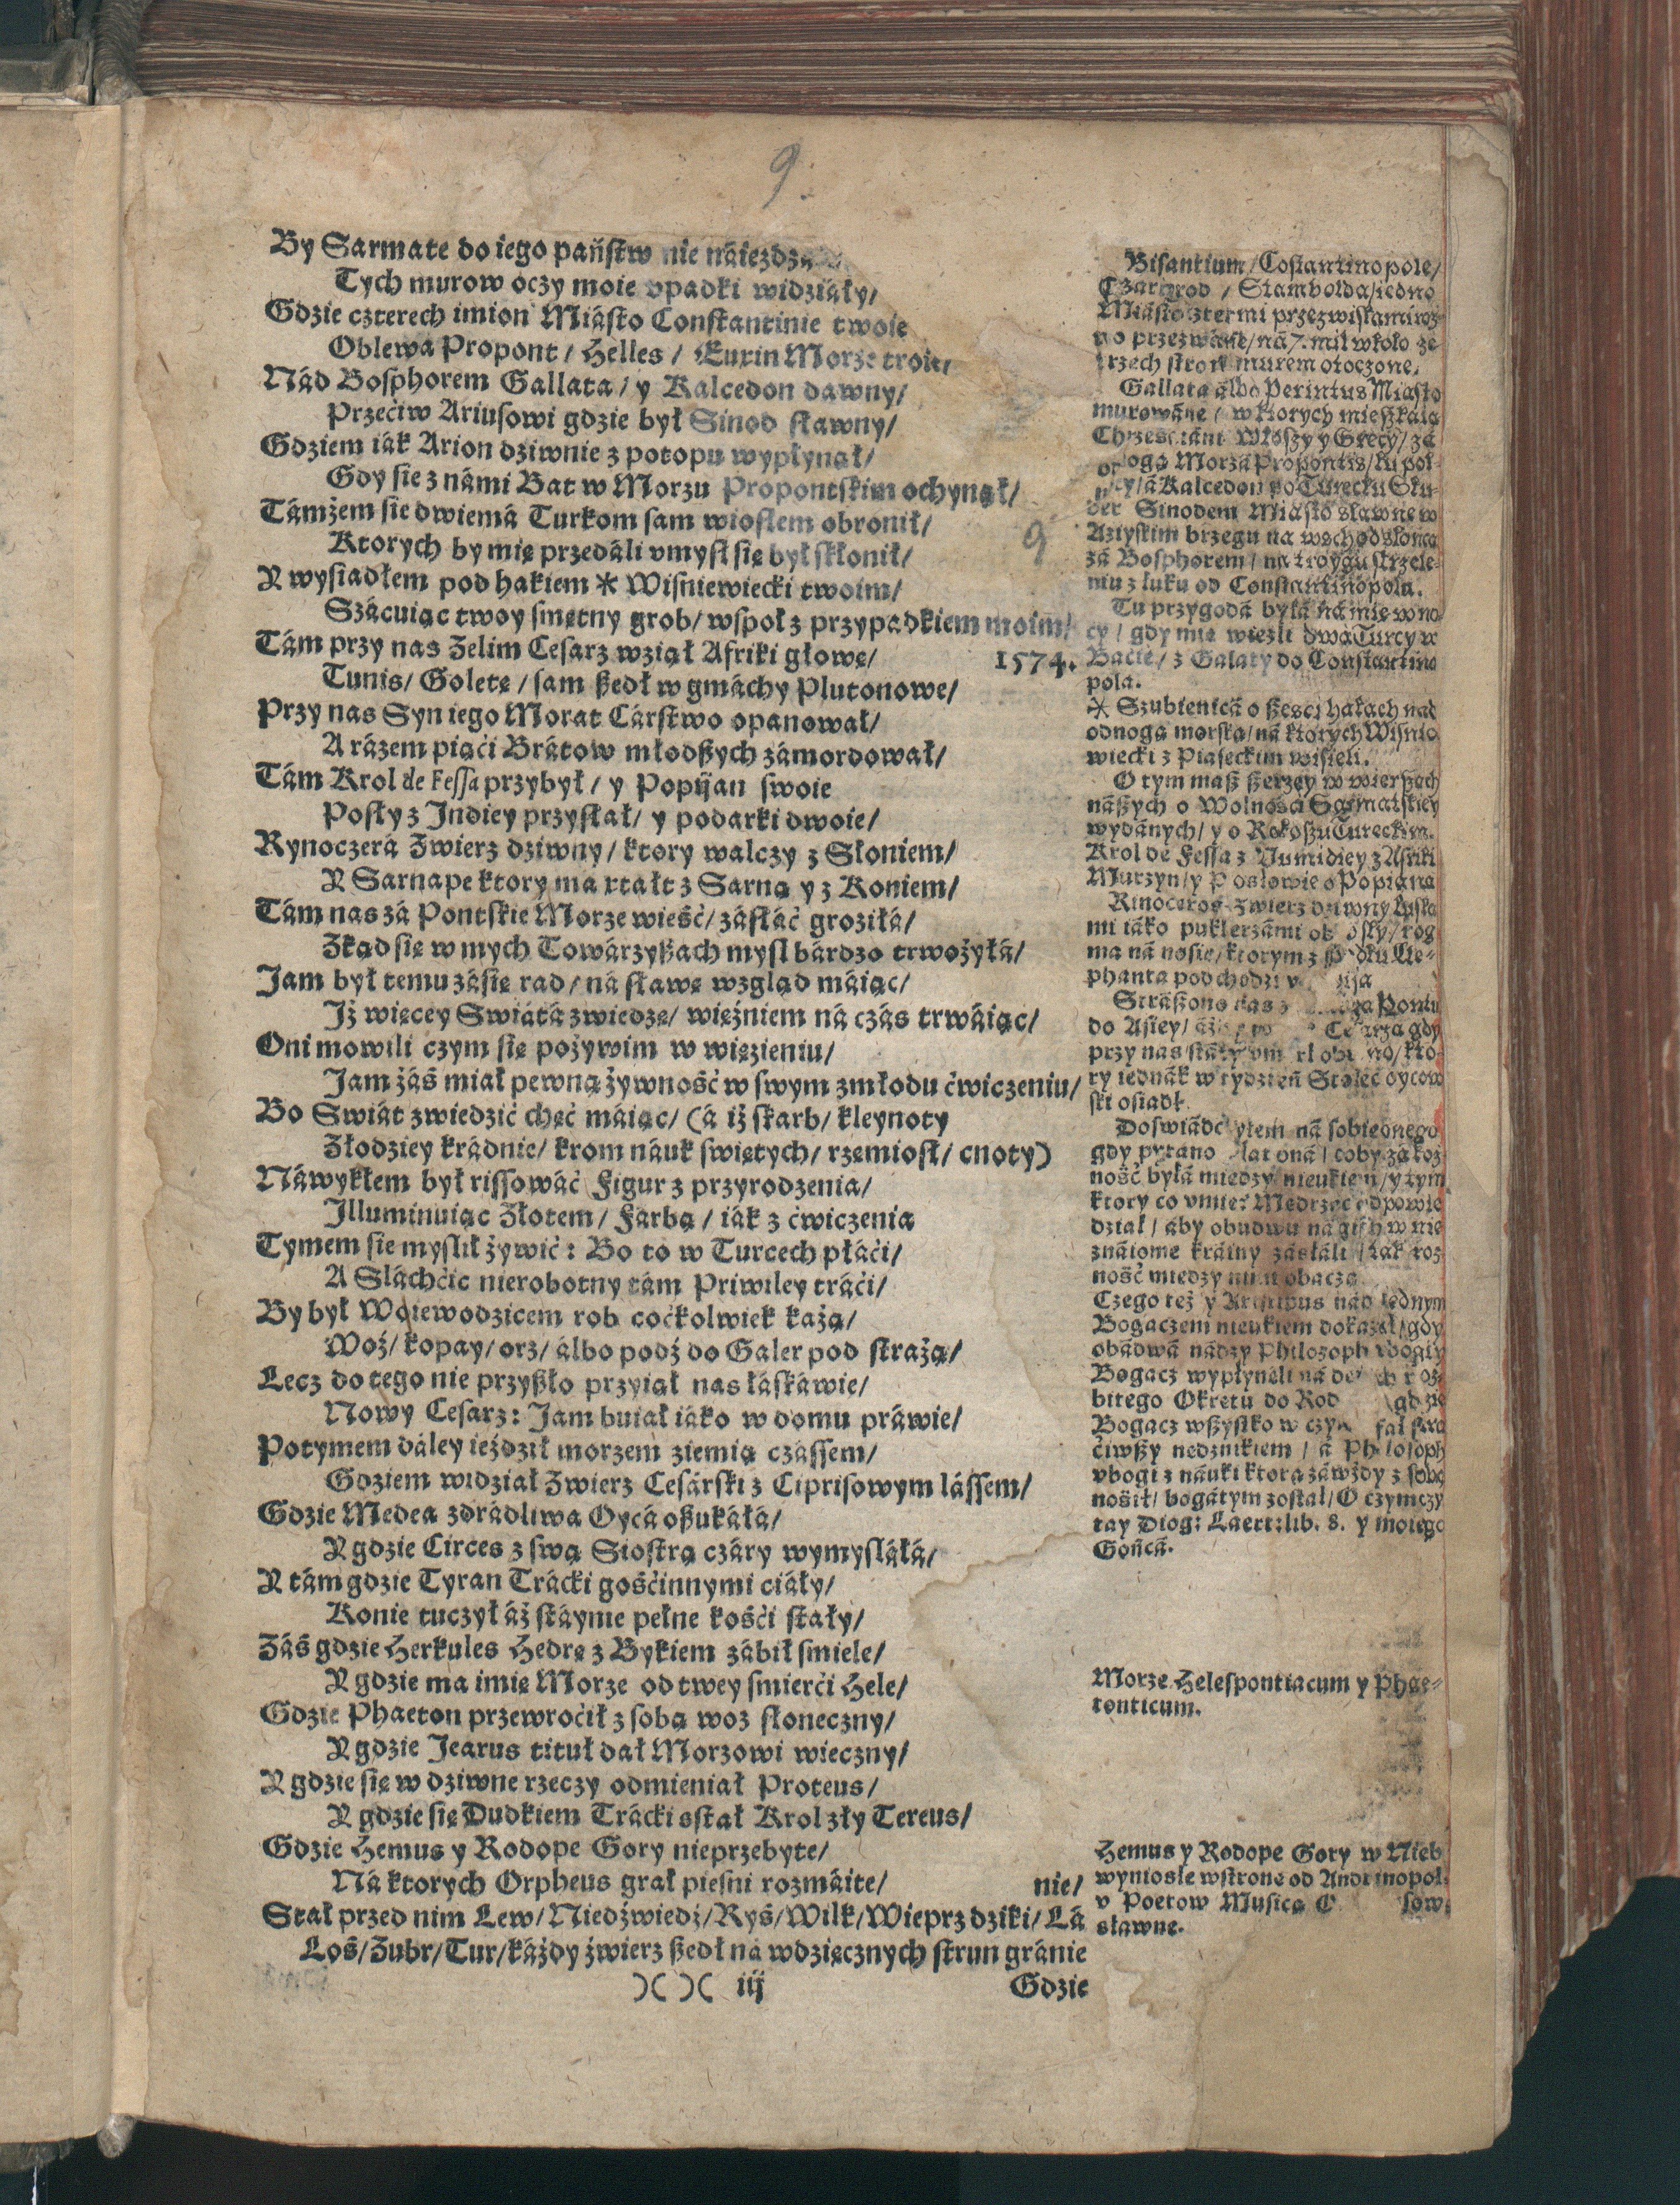 9.
By Sarmate do iego państw nie náiezdzá
Tych murow oczy moie vpadki widziáły/
Gdzie czterech imion Miásto Constantinie twoie
Oblewa Propont/ Helles/ Euxin Morze troie/
Nád Bosphorem Gallata/ y Kalcedon dawny/
Przećiw Ariusowi gdzie był Sinod sławny/
Gdziem iák Arion dziwnie z potopu wypłynął/
Gdy sie z námi Bat w Morzu Propontskim ochynął/
Támżem sie dwiemá Turkom sam wiosłem obronił/
Ktorych by mię przedáli vmysł się był skłonił/
Y wysiadłem pod hakiem * Wiśniewiecki twoim/
Szácuiąc twoy smętny grob/ wspoł z przypadkiem moim/
Tám przy nas Zelim Cesarz wziął Afriki głowę/
1574.
Tunis/ Goletę/ sam szedł w gmáchy Plutonowe/
Przy nas Syn iego Morat Cárstwo opanował/
A rázem piąći Brátow młodszych zámordował/
Tám Krol de Fessa przybył/ y Popijan swoie
Posły z Jndiey przysłał/ y podarki dwoie/
Rynoczerá Zwierz dziwny/ ktory walczy z Słoniem/
Y Sarnape ktory ma ktałt z Sarną y z Koniem/
Tám nas zá Pontskie Morze wieść/ zásłáć groziłá/
Zkąd się w mych Towárzyszach mysl bárdzo trwożyłá/
Jam był temu zásię rad/ ná sławę wzgląd máiąc/
Jż więcey Swiátá zwiedzę/ więźniem ná czás trwáiąc/
Oni mowili czym się pożywim w więzieniu/
Jam záś miał pewną żywność w swym zmłodu ćwiczeniu/
Bo Swiát zwiedzić chęć máiąc/ (á iż skarb/ kleynoty
Złodziey krádnie/ krom náuk swiętych/ rzemiosł/ cnoty)
Náwykłem był rissowáć Figur z przyrodzenia/
Jlluminuiąc Złotem/ Farbą/ iák z ćwiczenia
Tymem sie myslił żywić: Bo to w Turcech płáći/
A Sláchćic nierobotny tám Priwiley tráći/
By był Woiewodzicem rob coćkolwiek każą/
Woź/ kopay/ orz/ álbo podź do Galer pod strażą/
Lecz do tego nie przyszło przyiął nas łáskáwie/
Nowy Cesarz: Jam buiał iáko w domu práwie/
Potymem dáley ieździł morzem ziemią czássem/
Gdziem widział Zwierz Cesárski z Ciprisowym lássem/
Gdzie Medea zdrádliwa Oycá oszukáłá/
Y gdzie Circes z swą Siostrą czáry wymysláłá/
Y tám gdzie Tyran Trácki gośćinnymi ciáły/
Konie tuczył áż stáynie pełne kośći stały/
Záś gdzie Herkules Hedrę z Bykiem zábił smiele/
Y gdzie ma imię Morze od twey smierći Hele/
Gdzie Phaeton przewroćił z sobą woz słoneczny/
Y gdzie Jearus tituł dał Morzowi wieczny/
Y gdzie się w dziwne rzeczy odmieniał Proteus/
Y gdzie się Dudkiem Trácki sstał Krol zły Tereus/
Gdzie Hemus y Rodope Gory nieprzebyte/
Ná ktorych Orpheus grał piesni rozmáite/
nie/
Stał przed nim Lew/ Niedźwiedź/ Ryś/ Wilk/ Wieprz dziki/ Lá
Łoś/ Zubr/ Tur/ káżdy źwierz szedł na wdzięcznych strun gránie
)( )( iij
Gdzie
Bisantium/ Costantinopole/
Czarigrod / Stamboldá/ iedno
Miásto cztermi przezwiskámi roz
no przezwáne/ ná 7. mil wkoło ze
trzech stron murem otoczone.
Gallata álbo Perintus Miásto
murowáne/ w ktorych mieszkáią
Chrześćiáni Włoszy y Grecy/ zá
odnogą Morzá Propontis/
á Kalcedon po Turecku Sku-
der Sinodem Miásto sławne w
Aziyskim brzegu na wschod słońcá
zá Bosphorem/ na troygu strzele-
niu z łuku od Constantinopolá.
Tu przygodá byłá ná mię w no
cy/ gdy mię wiezli dwá Turcy w
Bácie/ z Galaty do Constantino
pola.
* Szubienicá o szesci hákach nad
odnogą morską/ ná ktorych Wiśnio
wiecki z Piaseckim wisieli.
O tym masz szerzey w wierszach
nászych o Wolności Sarmatskiey
wydánych/ y o Rokoszu Tureckim.
Krol de Fessa z Numidiey z Afriki
Murzyn/ y Posłowie o Popianá
Rinoceros Zwierz dziwny łuská
mi iáko puklerzámi obrosły/ rog
ma ná nosie/ ktorym z Ele-
phanta podchodzi
Strászono nas z Pontu
do Asiey/ Cesarza gdy
przy nas kto-
ry iednák w tydzień Stolec oycow
ski osiadł.
Doswiádczyłem ná sobie onego
gdy pytano Platoná/ coby zá roż
ność byłá miedzy nieukiem/ y tym
ktory co vmie: Mędrzec odpowie
dział/ aby obudwu nágich w nie
znáiome kráiny zásłáli/ ták roż
ność miedzy nimi obaczą.
Czego też y Aristipus nád iednym
Bogaczem nieukiem dokazał/ gdy
obádwá nádzy Philozoph vbogi y
Bogacz wypłynęli ná de roz-
bitego Okrętu do Rod gdzie
Bogacz wszystko w czym stra
ćiwszy nędznikiem/ á Philosoph
vbogi z náuki ktorą záwżdy z sobą
nośił/ bogátym został/ O czym czy
tay Diog: Laert: lib. 8. y moiego
Gońcá.
Morze Helespontiacum y Phae-
tonticum.
Hemus y Rodope Gory w Nieb
wyniosłe w stronę od Andrinopol.
v Poetow Musica
sławne.